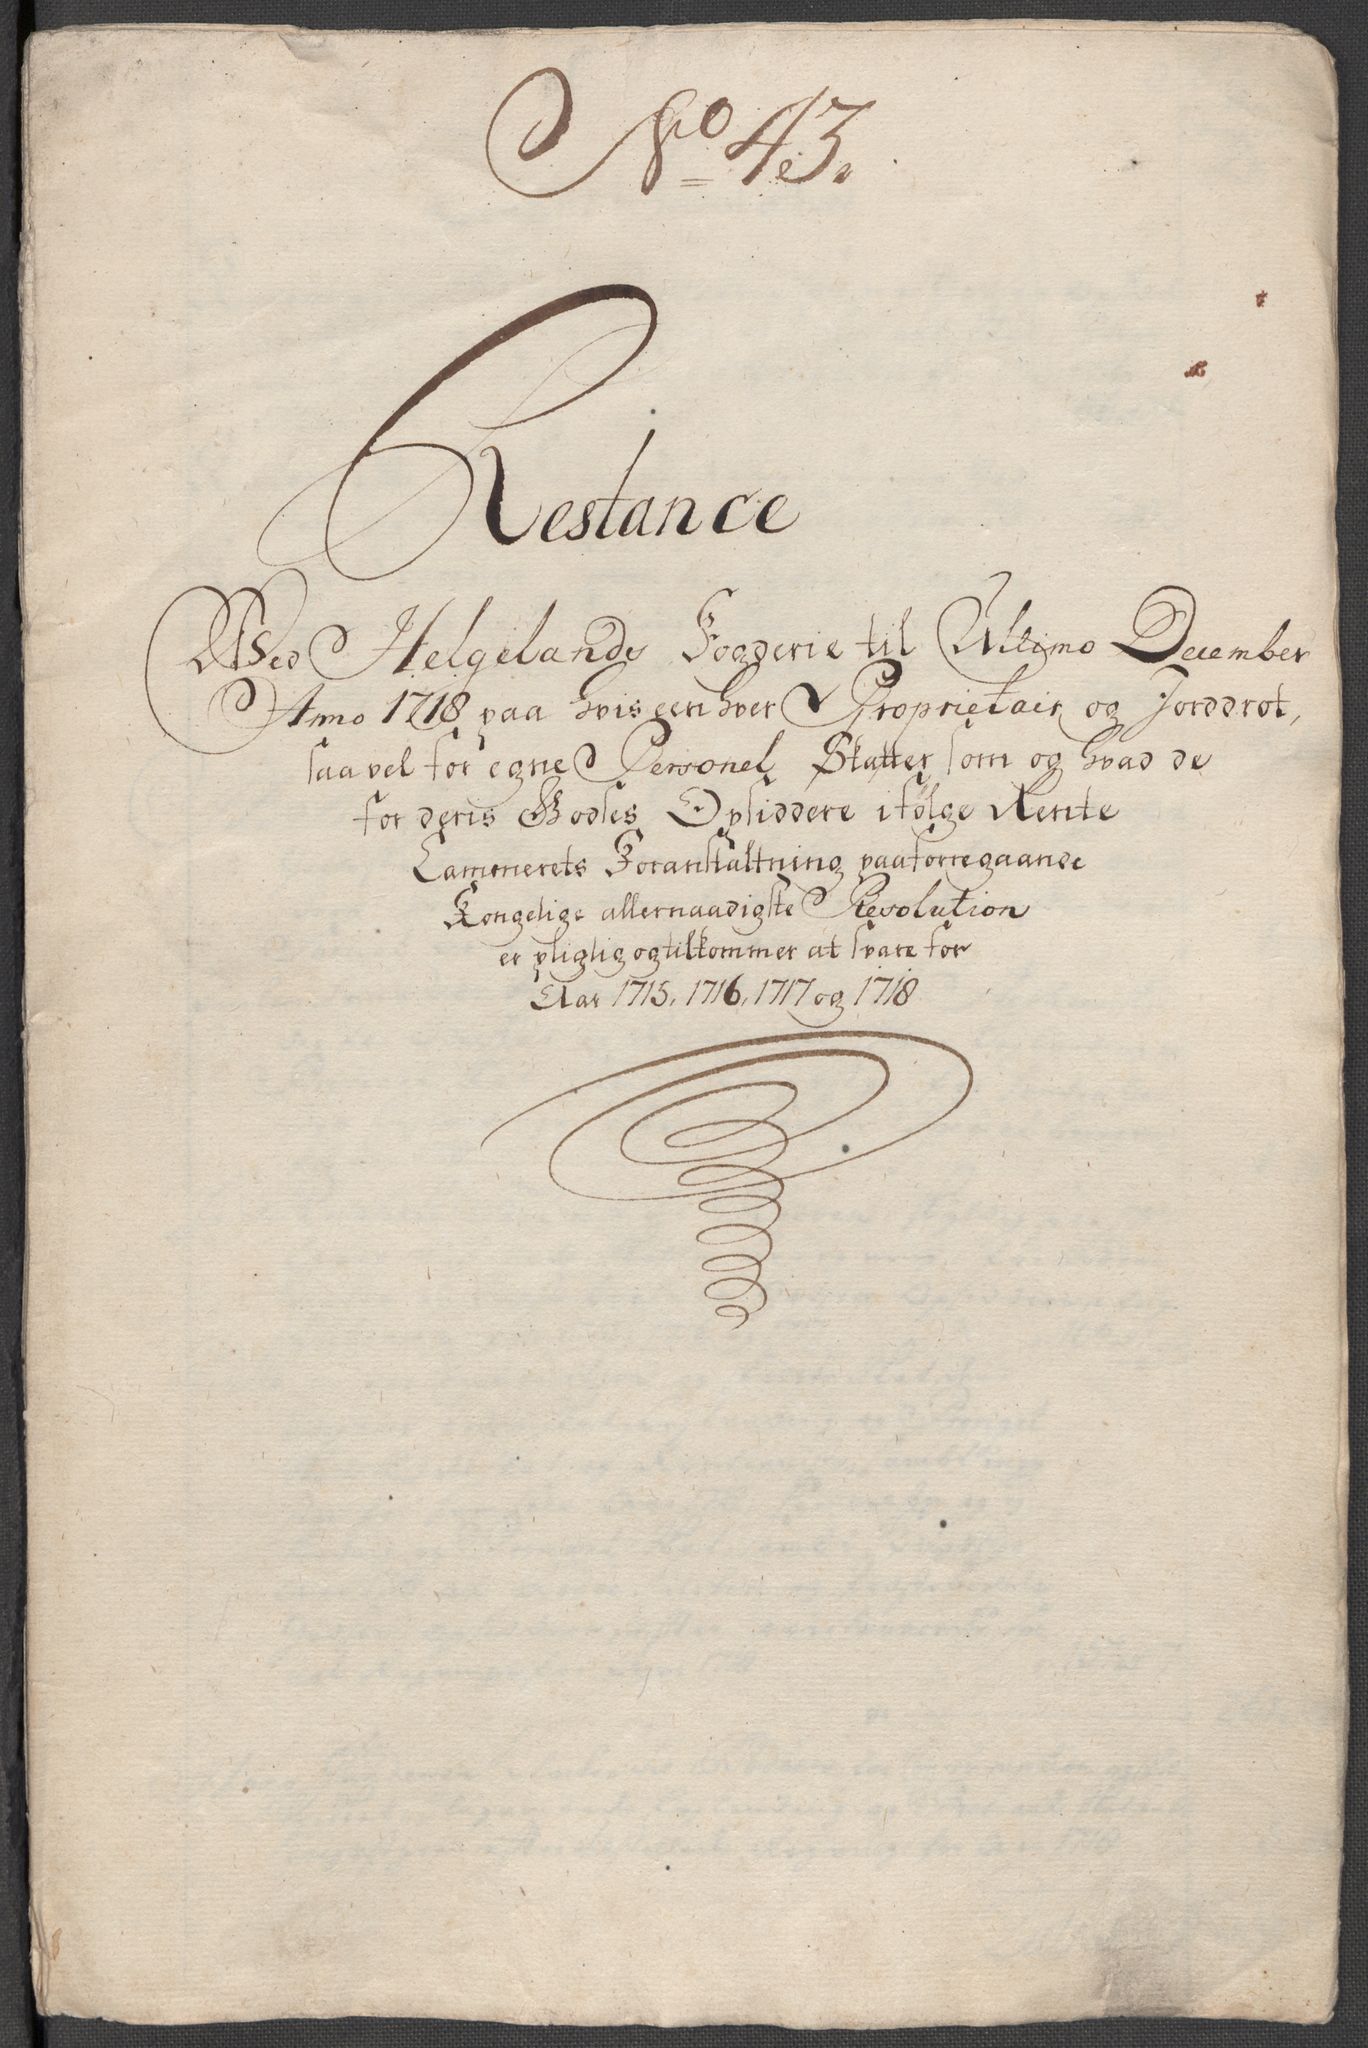 No 43.
Restance
Wed Helgelands Fogderie til Ultimo December
Anno 1718 paa hvis een hver Proprietair og Jorddrot,
saa vel for egne Personel Skatter som og hvad de
for deris Godses Opsiddere i følge Rente
Cammerets Foranstaltning paa forregaaende
Kongelige allernaadigste Resolution
er pligtig og tilkommer at svare for
Aar 1715, 1716, 1717 og 1718